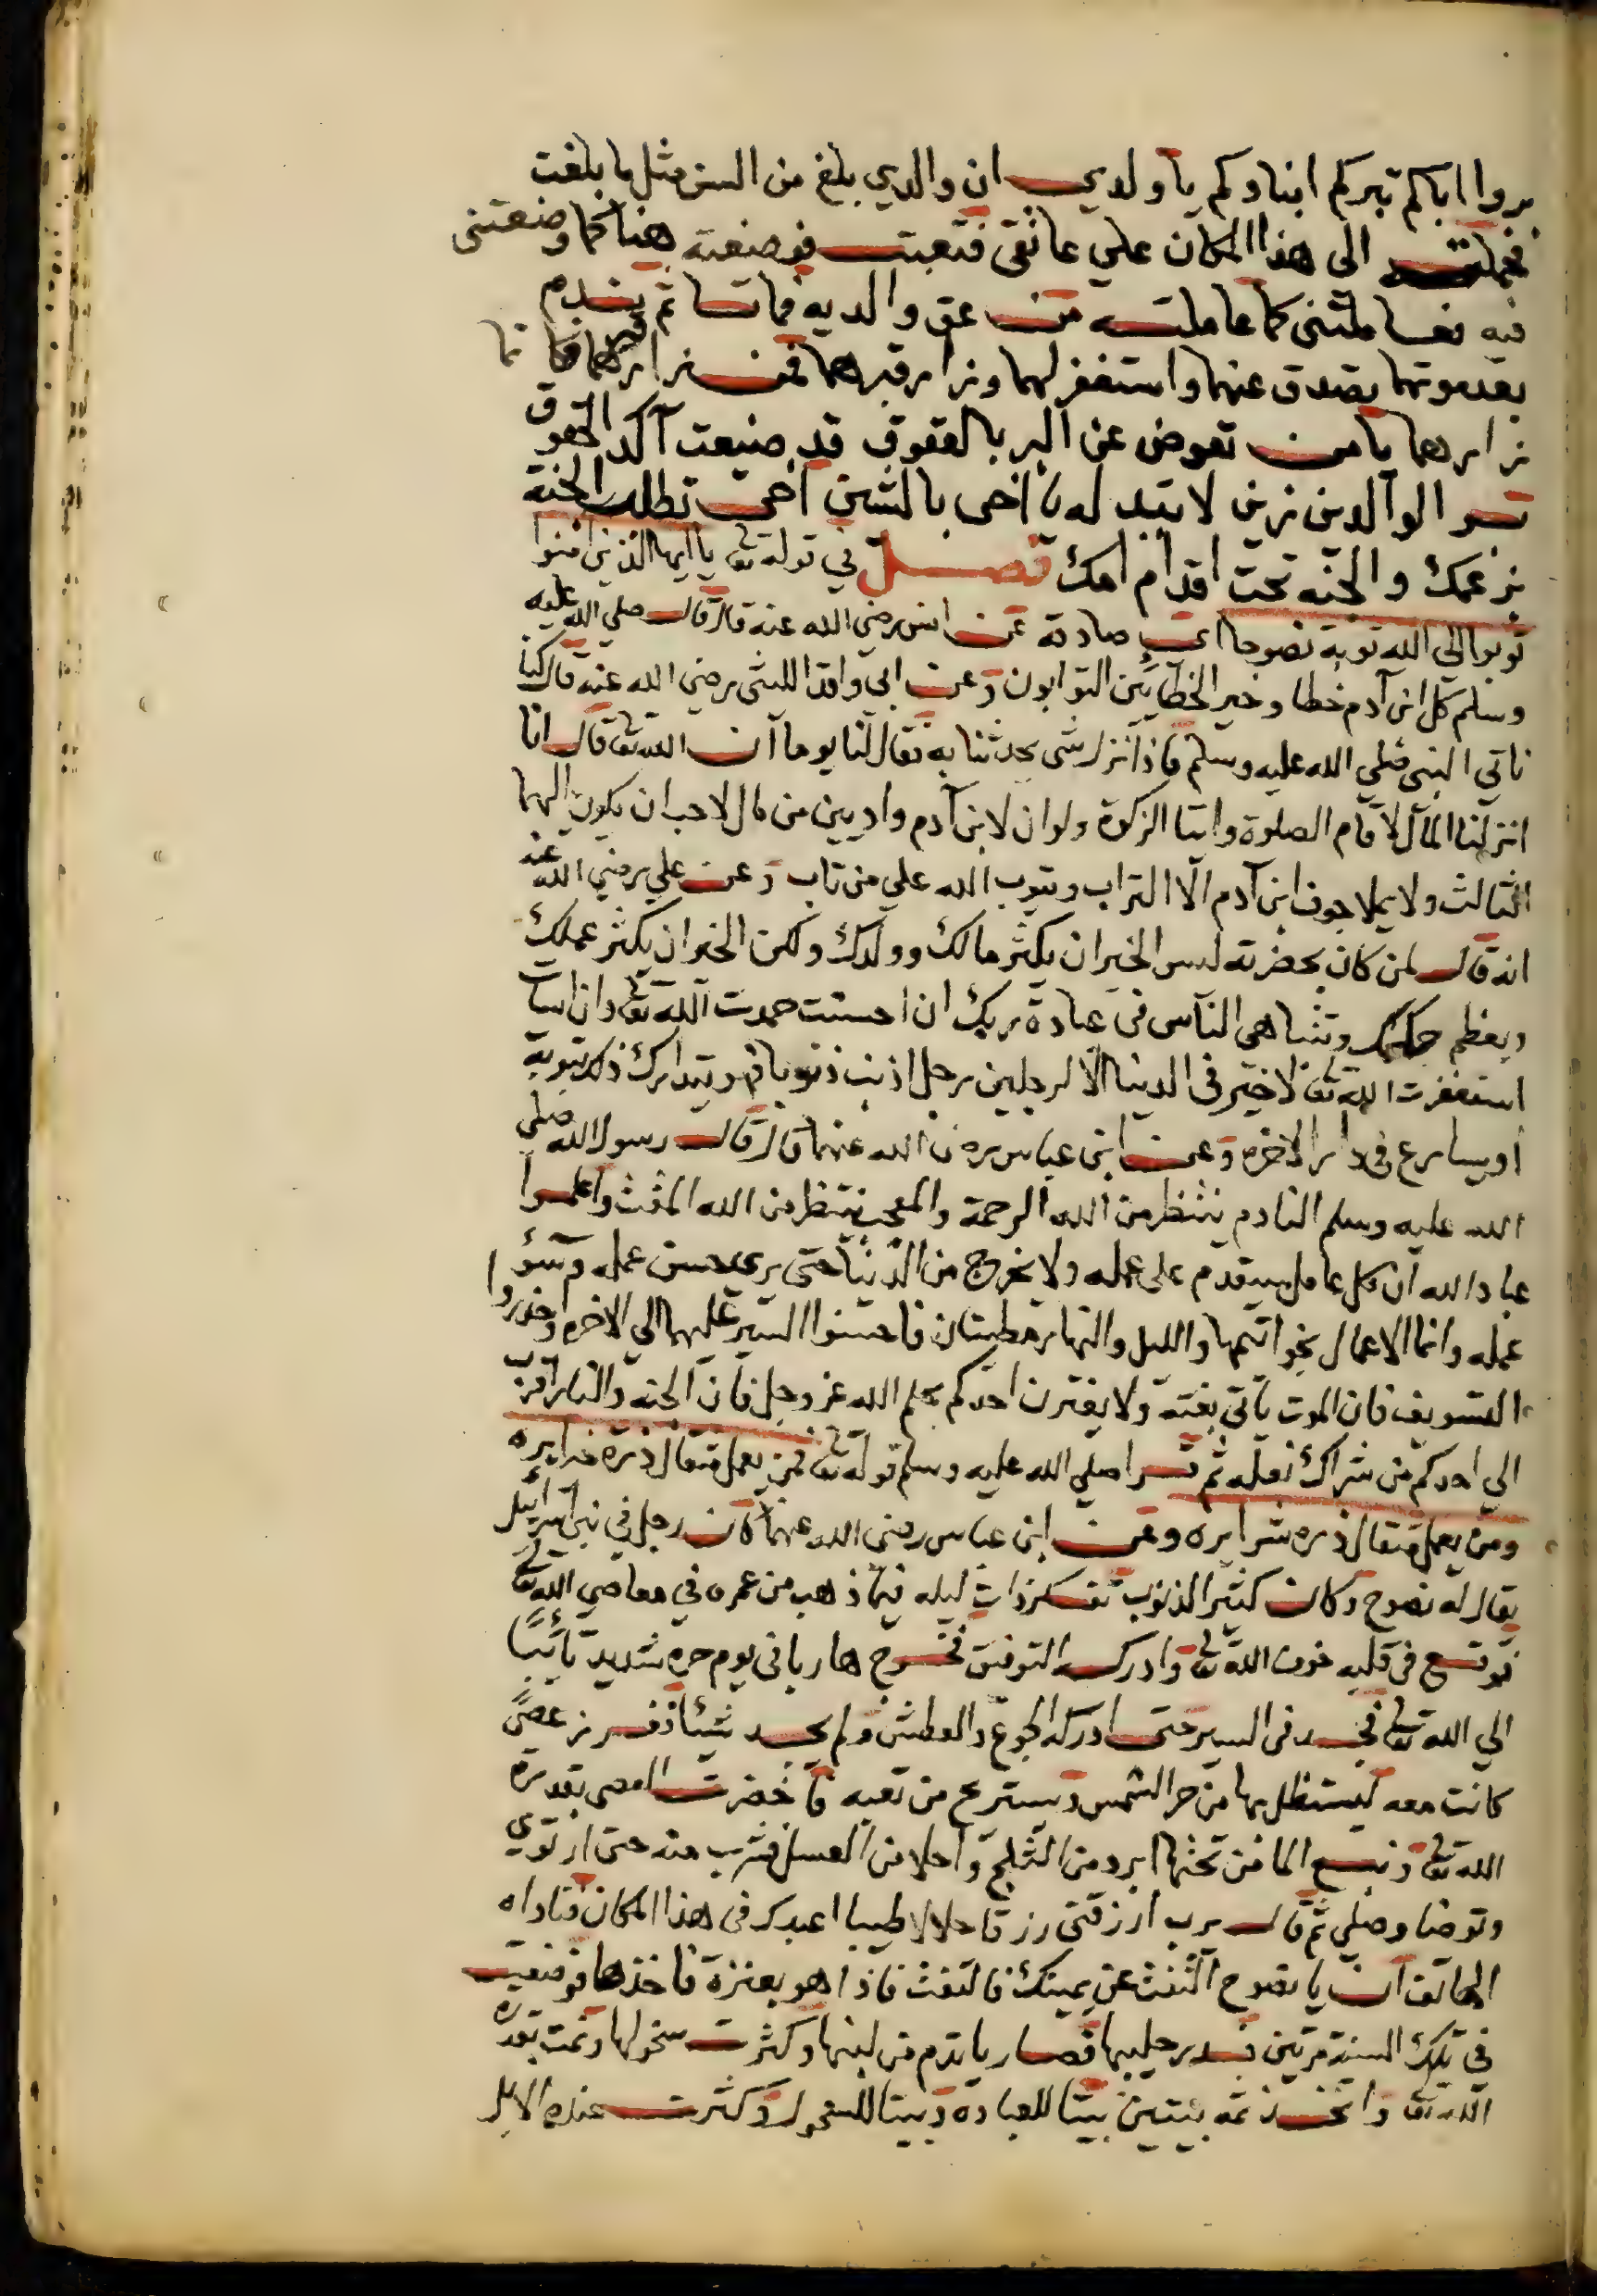 بروا اباكم تبركم ابناوكم يا ولدي ان والدي بلغ من السن مثل ما بلغت
فحملته الي هذا المكان علي عاتقي فتعبت فوضعته هنا كما وضعتني
فيه فعاملتني كما عاملته من عق والديه فماتا ثم يندم
بعد موتهما يصدق عنهما واستغفر لهما وزار قبرهما فمن زار قبرهما فكانما
زارهما يا من تعوض عن البر بالعقوق قد ضيعت آكد الحقوق
الوالدين زين لا تبدله يا اخي بالشين اخي تطلب الجنة
بزعمك والجنه تحت اقدام امك فصل في قوله تعا يا ايها الذين امنوا
توبوا الي الله توبة نصوحا اي صادقة عن انس رضي الله عنه قال قال صلي الله عليه
وسلم كل ابن آدم خطا وخير الخطائين التوابون وعن ابي واقد الليثي رضي الله عنه قال كنا
ناتي النبي صلي الله عليه وسلم فاذا نزل شي يحدثنا به فقال لنا يوما ان الله تعا قال انا
انزلنا المال لاقام الصلوة وايتا الزكوة ولو ان لابن آدم واديين من مال لاحب ان يكون اليهما
الثالث ولا يملا جوف ابن آدم الا التراب ويتوب الله علي من تاب وعن علي رضي الله عنه
انه قال لمن كان بحضرته ليس الخير ان يكثر مالك وولدك ولكن الخير ان يكثر عملك
ويعظم حلمك وتتباهي الناس في عبادة ربك ان احسنت حمدت الله تعا وان اسات
استغفرت الله تعا لا خير في الدنيا الا لرجلين رجل اذنب ذنوبا فهو يتدارك ذلك بتوبة
او يسارع في دار الاخره وعن ابن عباس رضي الله عنهما قال قال رسول الله صلي
الله عليه وسلم النادم ينتظر من الله الرحمة والمعجب ينتظر من الله المقت واعلموا
عباد الله ان كل عامل سيقدم علي عمله ولا يخرج من الدنيا حتي يري حسن عمله وسوء
عمله وانما الاعمال بخواتمها والليل والنهار مطيتان فاحسنوا السير عليهما الي الاخره واحذروا
التسويف فان الموت ياتي بغتة ولا يغترن احدكم بحلم الله عز وجل فان الجنه والنار اقرب
الي احدكم من شراك نعله ثم قرا صلي الله عليه وسلم قوله تعا فمن يعمل مثقال ذرة خيرا يره
ومن يعمل مثقال ذره شرا يره وعن ابن عباس رضي الله عنهما كان رجل في بني اسرائيل
يقال له نصوح وكان كثير الذنوب تفكر ذات ليله فيما ذهب من عمره في معاصي الله تعا
فوقع في قلبه خوف الله تعا وادركه التوفيق فخرج هاربا في يوم حره شديد تائبا
الي الله تعا فجد في السير حتي ادركه الجوع والعطش ولم يجد شيئا فغرز عصي
كانت معه ليستظل بها من حر الشمس ويستريح من تعبه فاخضرت العصي بقدرة
الله تعا ونبع الما من تحتها ابرد من الثلج واحلا من العسل فشرب منه حتي ارتوي
وتوضا وصلي ثم قال يرب ارزقني رزقا حلالا طيبا اعبدك في هذا المكان فناداه
الهاتف ان يا نصوح التفت عن يمينك فالتفت فاذا هو بعنزة فاخذها فوضعت
في تلك السنة مرتين فدر حليبها فصار يا تدم من لبنها وكثرت سخولها ونمت بقدرة
الله تعا واتخذ ثمه بيتين بيتا للعبادة وبيتا للسخول وكثرت عنده الابل